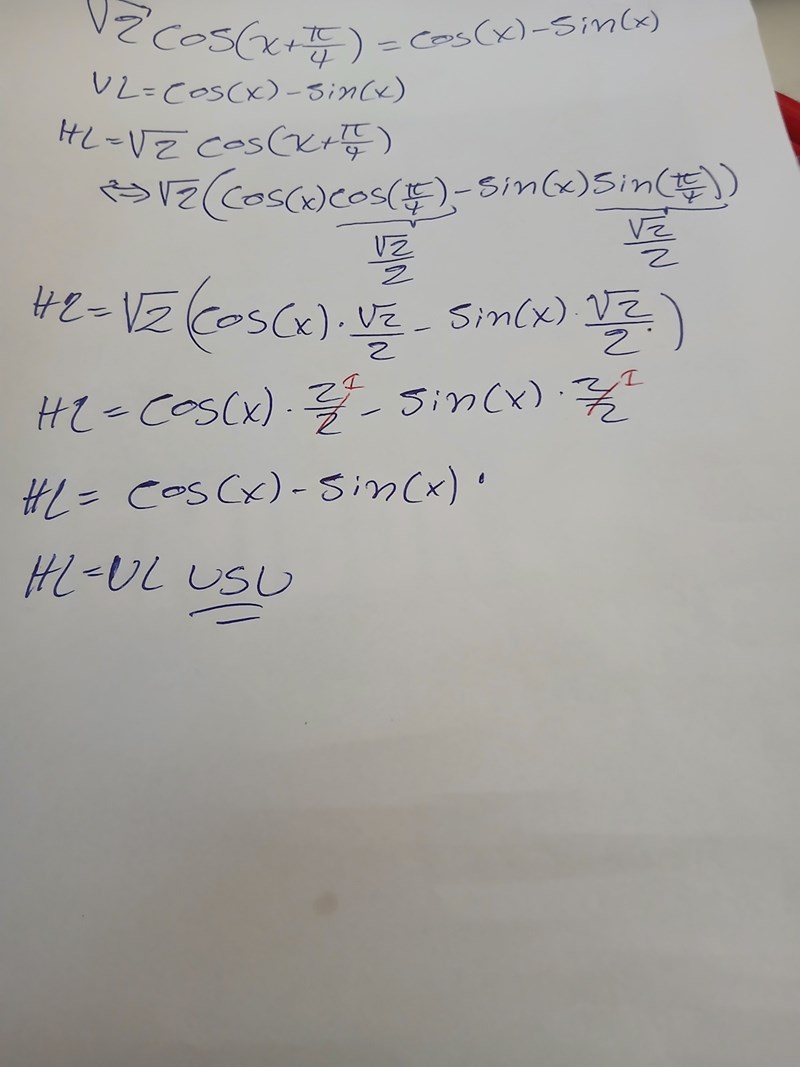 √2 cos(x+π/4) = cos(x)-sin(x)
VL = cos(x) - sin(x)
HL = √2 cos(x+π/4)
⇔ √2 (cos(x)cos(π/4) - sin(x)sin(π/4))
√2/2 √2/2
HL = √2 (cos(x) · √2/2 - sin(x) · √2/2)
HL = cos(x) · 2/2 1 - sin(x) · 2/2 1
HL = cos(x) - sin(x) ·
HL = VL VSV